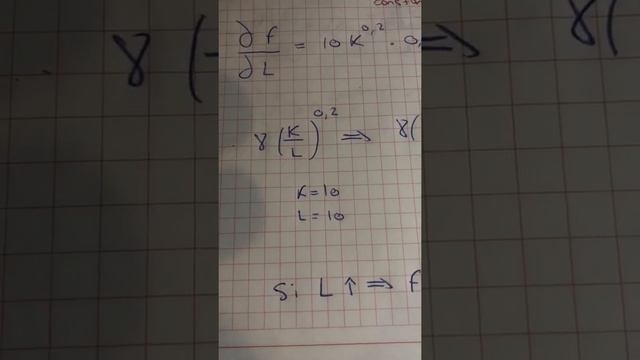 ∂f/∂L = 10 K^0,2 · 0,
8 (K/L)^0,2 ⇒ 8(
K = 10
L = 10
Si L ↑ ⇒ f